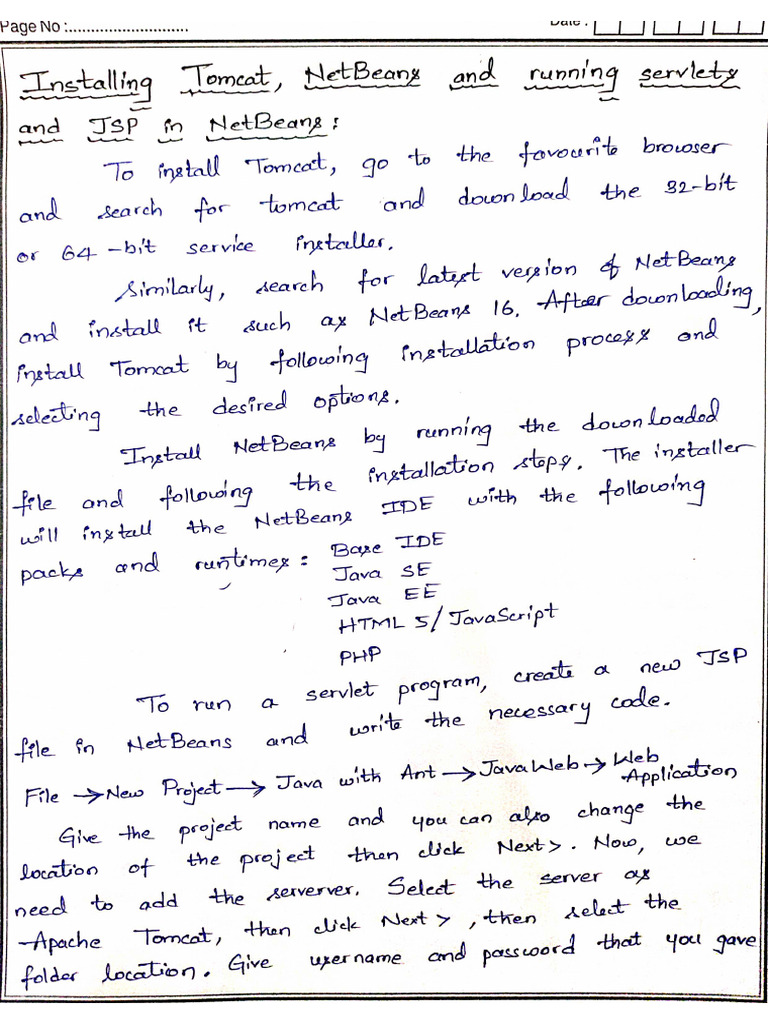 Page No :........................... Date :
Installing Tomcat, NetBeans and running servlets
and JSP in NetBeans:
To install Tomcat, go to the favourite browser
and search for tomcat and download the 32-bit
or 64-bit service installer.
Similarly, search for latest version of NetBeans
and install it such as NetBeans 16. After downloading,
install Tomcat by following installation process and
selecting the desired options.
Install NetBeans by running the downloaded
file and following the installation steps. The installer
will install the NetBeans IDE with the following
packs and runtimes: Base IDE
Java SE
Java EE
HTML 5/JavaScript
PHP
To run a servlet program, create a new JSP
file in NetBeans and write the necessary code.
File → New Project → Java with Ant → Java Web → Web
Application
Give the project name and you can also change the
location of the project then click Next>. Now, we
need to add the serverver. Select the server as
Apache Tomcat, then click Next>, then select the
folder location. Give username and password that you gave